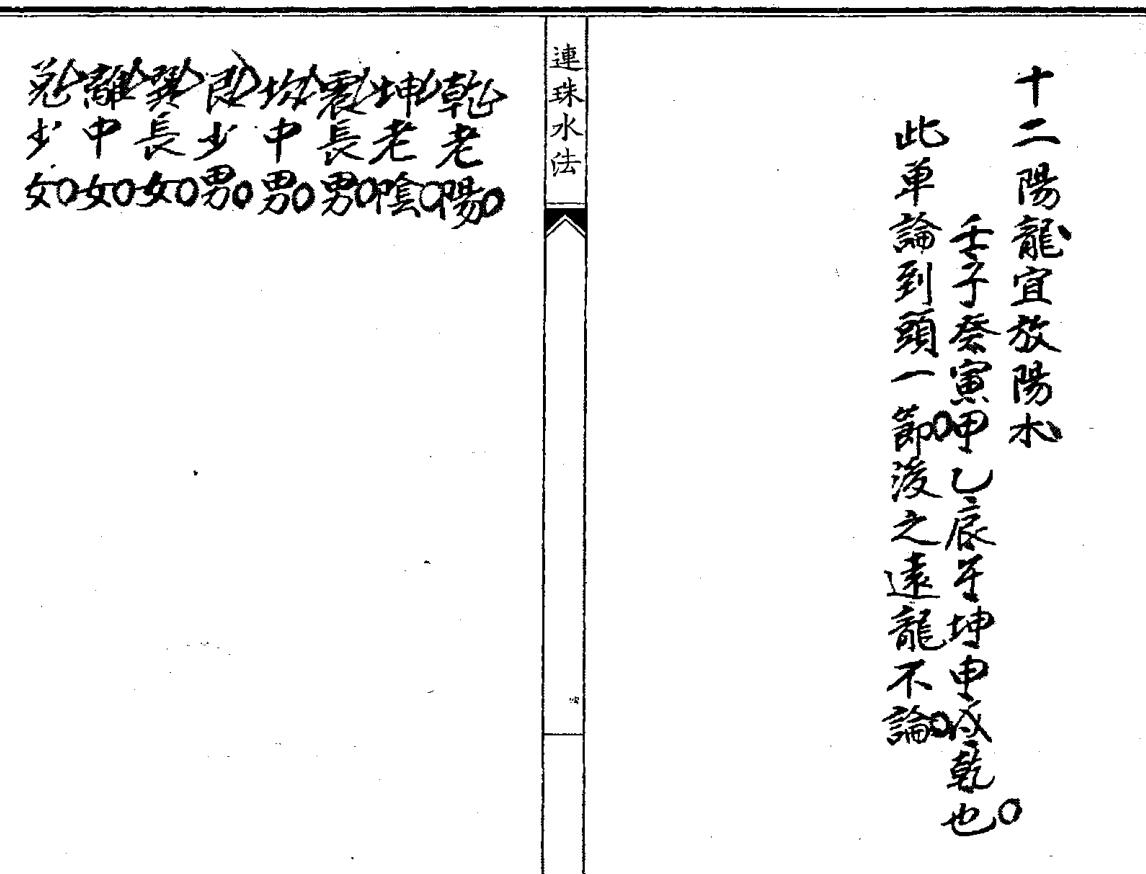 十二陽龍宜放陽水
壬子癸寅甲乙辰午坤申戌乾也
此单論到頭一節後之遠龍不論
連珠水法
乾老陽
坤老陰
震長男
坎中男
艮少男
巽長女
離中女
兌少女